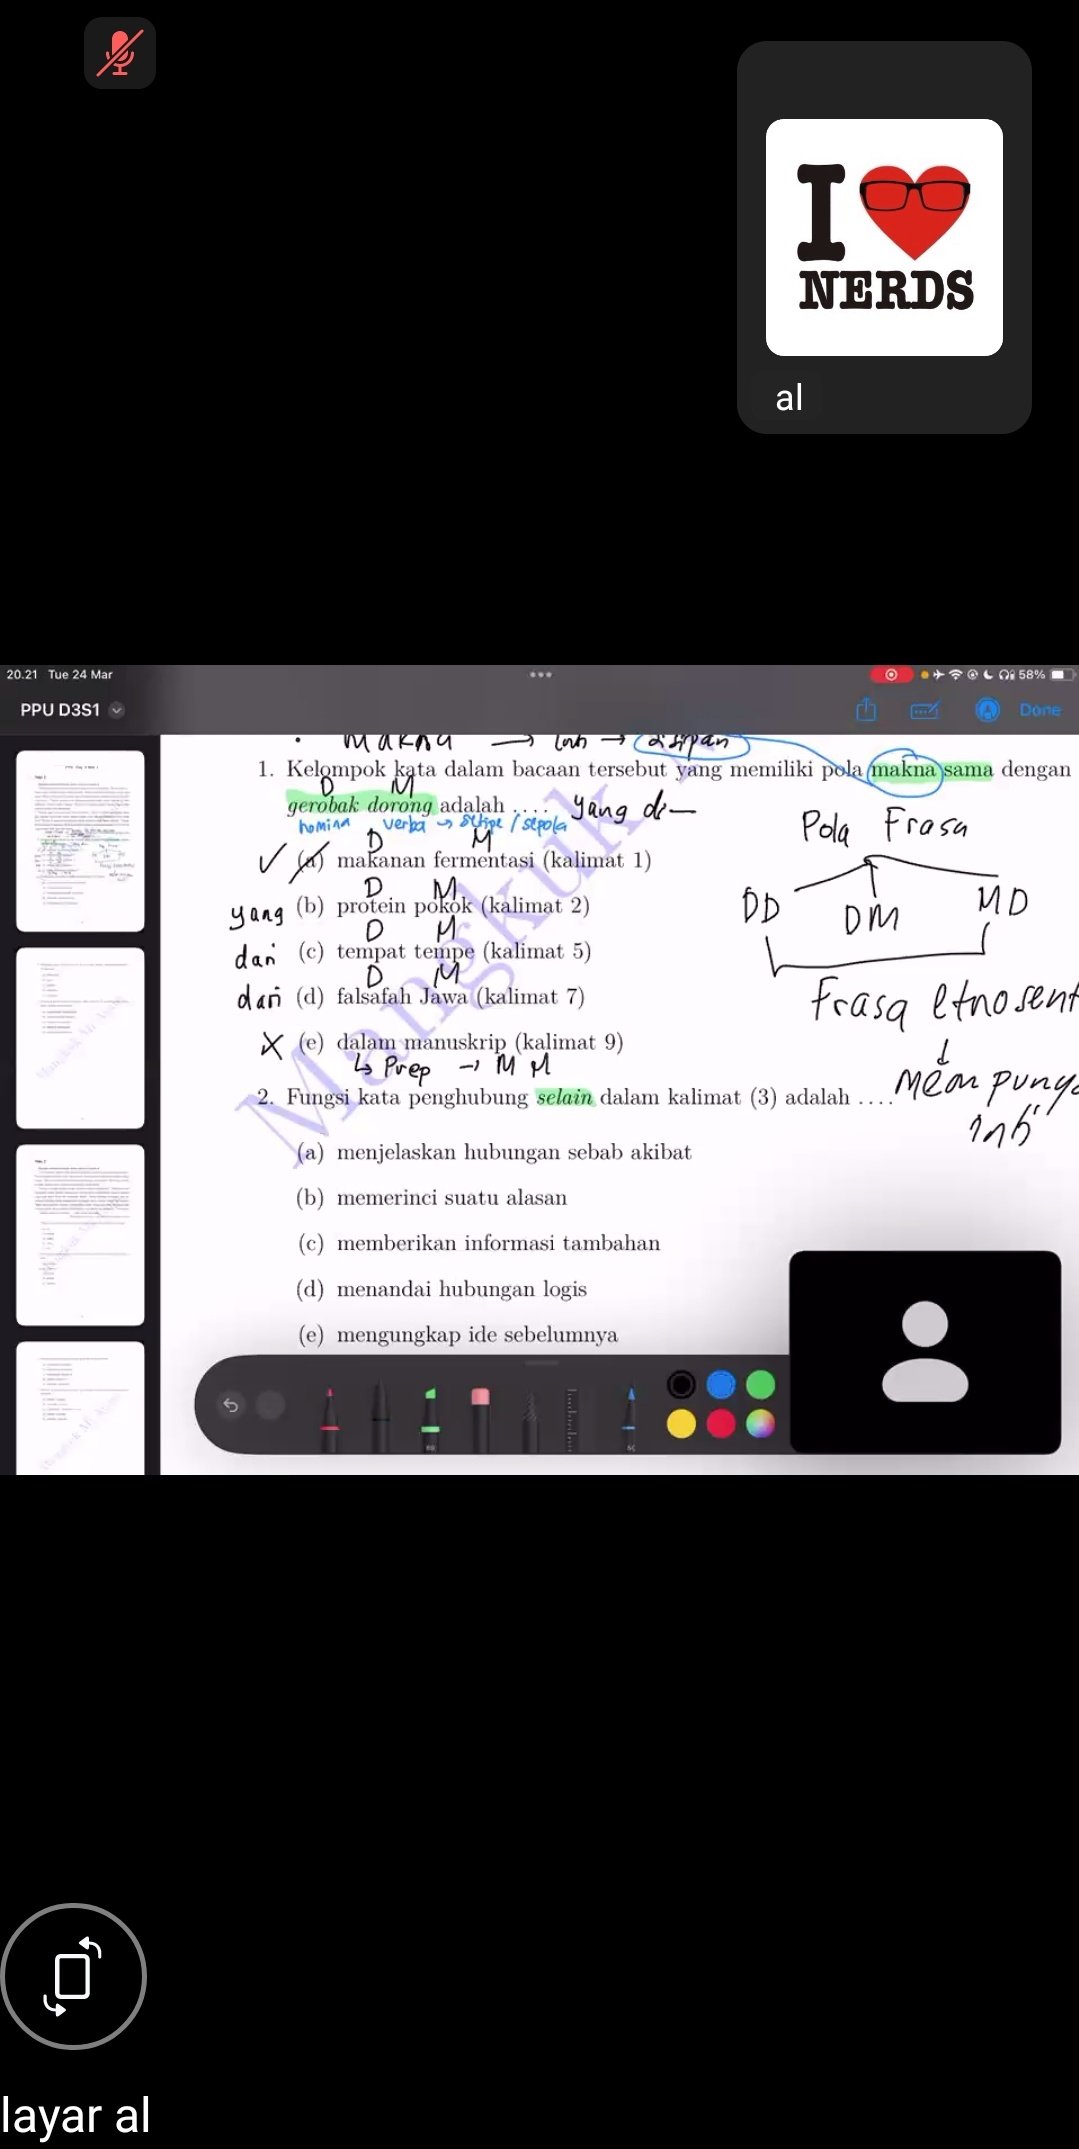 I
NERDS
al
20.21 Tue 24 Mar
58%
PPU D3S1
Done
makna → inti → disipan
1. Kelompok kata dalam bacaan tersebut yang memiliki pola makna sama dengan
D M
gerobak dorong adalah . . . . yang di—
nomina verba → setipe / sepola
Pola Frasa
D M
(a) makanan fermentasi (kalimat 1)
DD DM MD
D M
yang (b) protein pokok (kalimat 2)
D M
dari (c) tempat tempe (kalimat 5)
D M
dari (d) falsafah Jawa (kalimat 7)
Frasa etnosent
X (e) dalam manuskrip (kalimat 9)
↳ Prep → M M
2. Fungsi kata penghubung selain dalam kalimat (3) adalah . . . .
inti
(a) menjelaskan hubungan sebab akibat
(b) memerinci suatu alasan
(c) memberikan informasi tambahan
(d) menandai hubungan logis
(e) mengungkap ide sebelumnya
Mangkuk
layar al